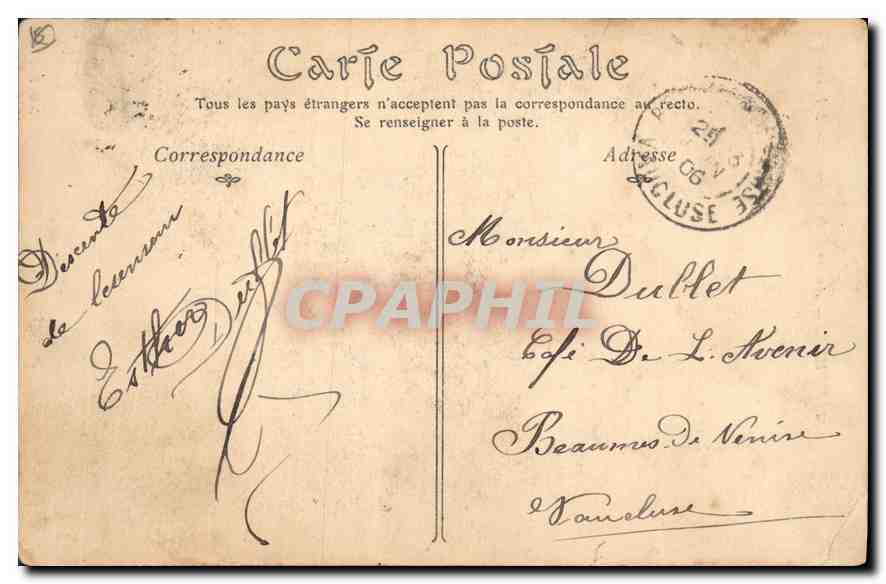 18
Carte Postale
Tous les pays étrangers n'acceptent pas la correspondance au recto.
Se renseigner à la poste.
Correspondance
Adresse
25
06
VAUCLUSE
Descente
de
Esther Dublet
CPAPHIL
Monsieur
Dublet
Café De L. Avenir
Beaumes De Venise
Vaucluse